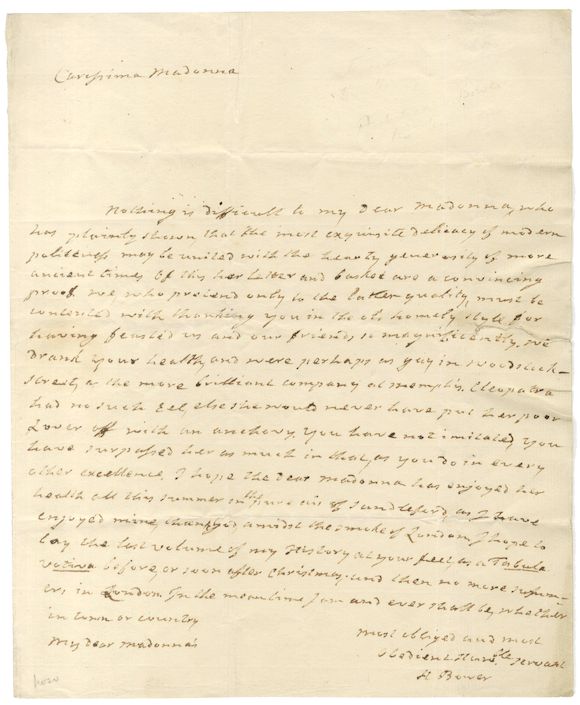 Carissima Madonna
Nothing is difficult to my dear Madonna, who
has plainly shown that the most exquisite delicacy of modern
politeness may be united with the hearty generosity of more
ancient times Of this her letter and basket are a convincing
proof. We who pretend only to the latter quality must be
contented with thanking you in the old homely style for
having feasted us and our friends so magnificently, we
drank your health, and were perhaps as gay in Woodstock-
street, as the more brilliant company at Memphis. Cleopatra
had no such Eel, else she would never have put her poor
Lover off with an anchovy. You have not imitated, you
have surpassed her as much in that, as you do in every
other excellence. I hope the dear Madonna has enjoyed her
health all this summer in the pure air of Sandleford, as I have
enjoyed mine, amidst the smoke of London. I hope to
lay the last volume of my History at your feet, as a Tabula
votiva before, or soon after Christmas; and then no more summ-
ers in London. In the meantime I am and ever shall be, whether
in town or country
My dear Madonna's
most obliged and most
obedient Humble servant
A Bower